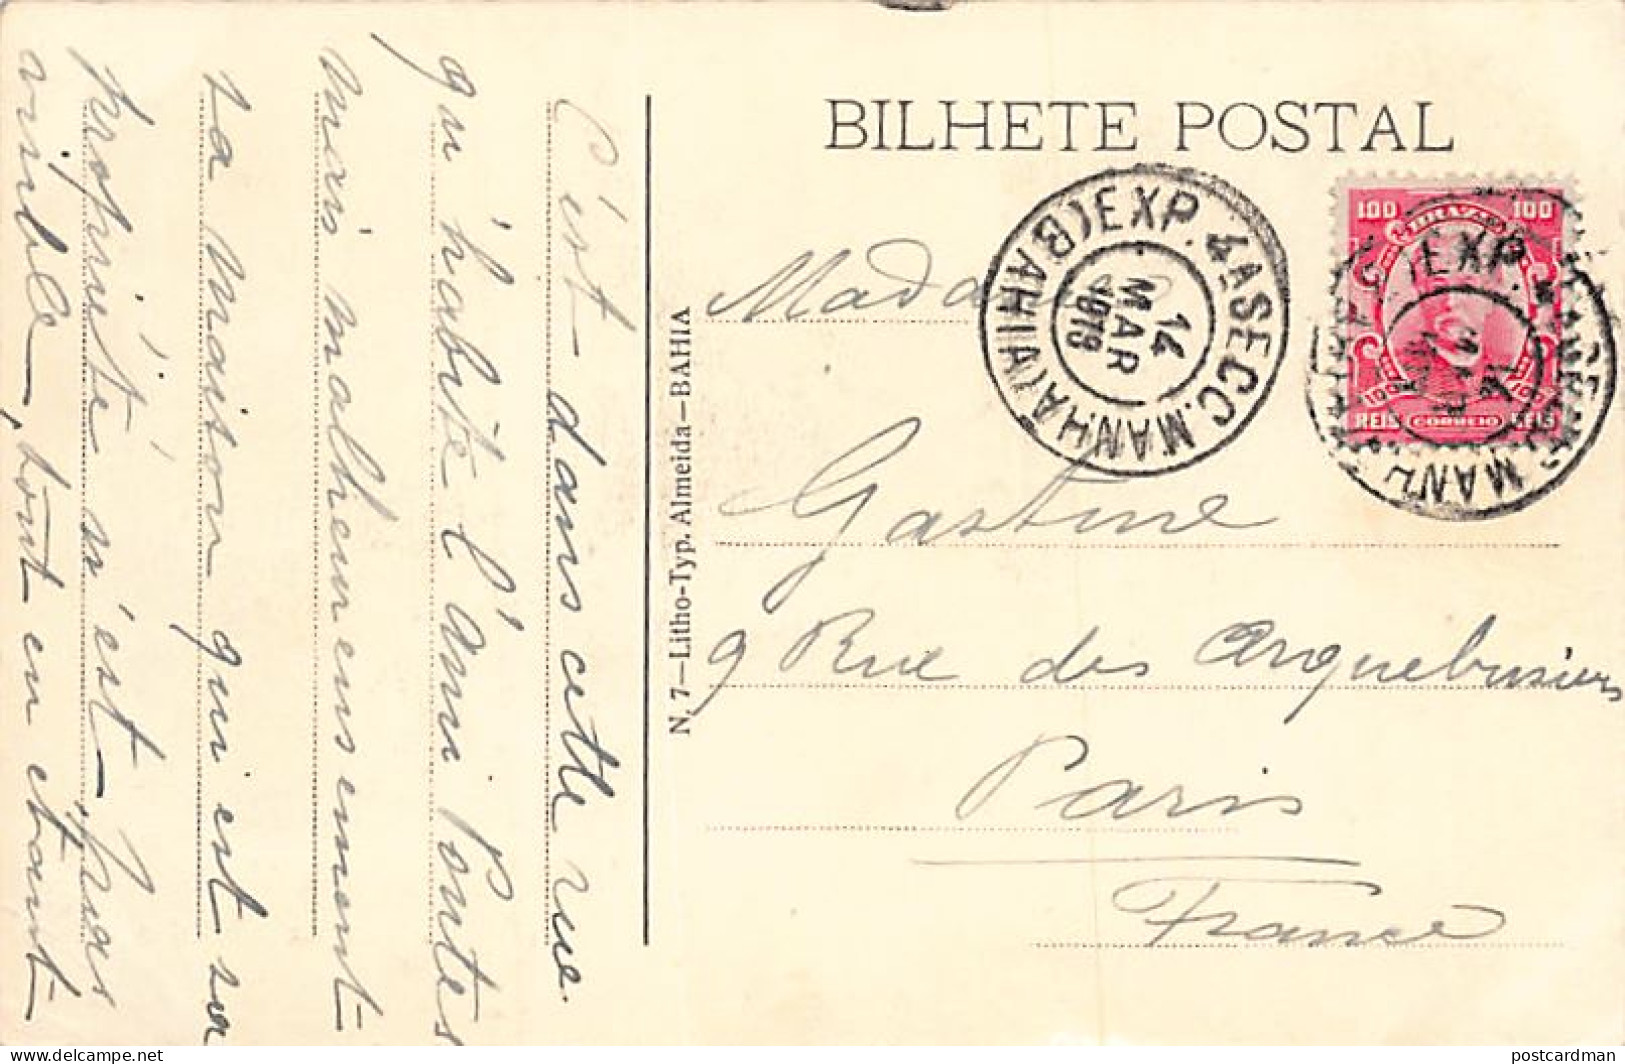 BILHETE POSTAL
C'est dans cette rue
qu'habite l'ami Pontes
mais malheureusement
la maison qui est sa
propriété n'est pas
visible, tout en étant
N. 7—Litho-Typ. Almeida—BAHIA
Madame
Gastine
9 Rue des Arquebusiers
Paris
France
EXP. 4ª SECC. MANHA (BAHIA)
14
MAR
100 BRAZIL 100
100 100
REIS CORREIO REIS
EXP.
14
MAR
delcampe.net
postcardman